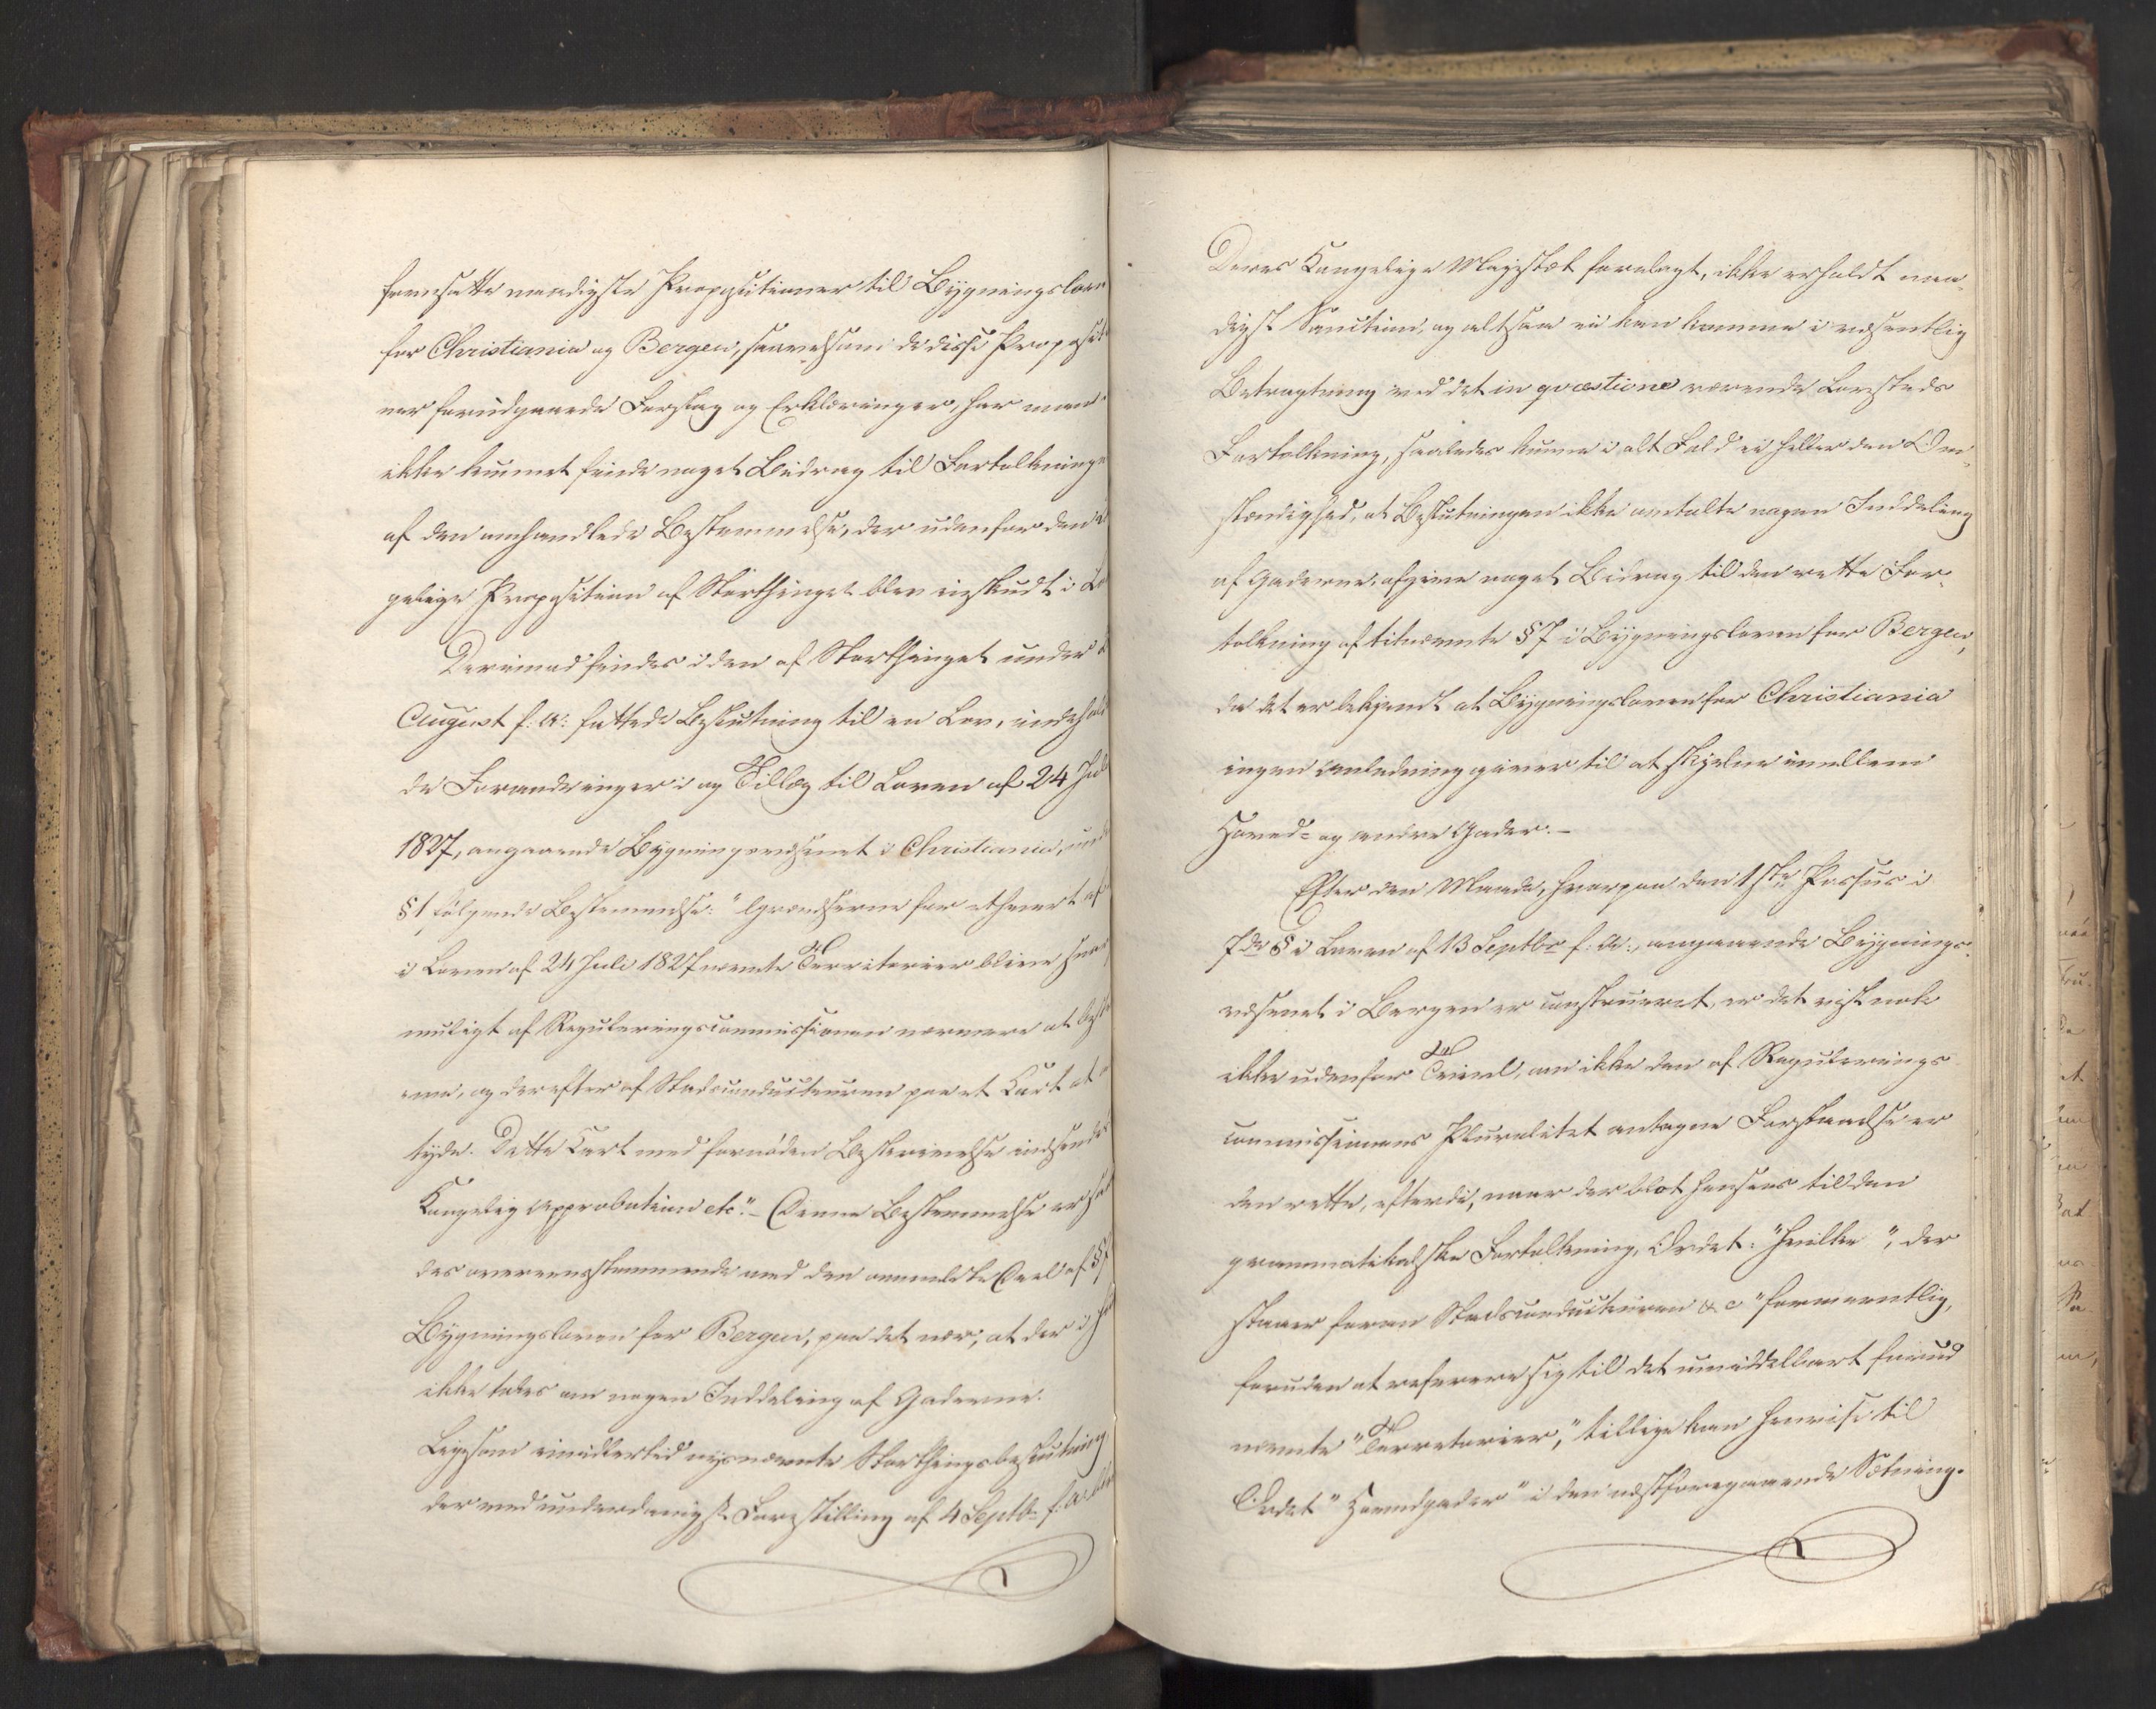 fremsatte naadigste Propositioner til Bygningslove
for Christiania og Bergen, saavelsom de disse Proposit
ner forudgaaede Forslag og Erklæringer, har man
ikke kunnet finde noget Bidrag til Fortolkninge
af den omhandlede Bestemmelse, der udenfor den
gelige Proposition af Storthinget blev inskudt i Lo
Derimod findes i den af Storthinget under
August f: A: fattede Beslutning til en Lov, indehol
de Forandringer i og Tillæg til Loven af 24 Juli
1827, angaaende Bygningsvæsenet i Christiania, und
§ 1 følgende Bestemmelse: "Grændserne for ethvert af
i Loven af 24 Juli 1827 nævnte Territorier blive snar
muligt af Reguleringscommissionen nærmere at beste
me, og derefter af Stadsconducteuren paa et Kart at
tyde. Dette Kart med fornøden Beskrivelse indsendes
Kongelig Approbation etc." – Denne Bestemmelse er
des overeensstemmende med den anmeldte Deel af § 7
Bygningsloven for Bergen, paa det nær, at der i
ikke tales om nogen Inddeling af Gaderne.
Ligesom imidlertid nysnævnte Storthingsbeslutning
der med underdanigst Forestilling af 4 Septbr f: A: blev
Deres Kongelige Majestæt forelagt, ikke erholdt naa-
digst Sanction, og altsaa ei kan komme i væsentlig
Betragtning ved det in qvæstione værende Lovsteds
Fortolkning, saaledes kunne i alt Fald ei heller den Om-
stændighed, at Beslutningen ikke omtalte nogen Inddeling
af Gaderne, afgive noget Bidrag til den rette For-
tolkning af titnævnte § 7 i Bygningsloven for Bergen,
da det er bekjendt at Bygningsloven for Christiania
ingen Anledning giver til at skjelne imellem
Hoved- og andre Gader. –
Efter den Maade, hvorpaa den 1ste Passus i
7de § i Loven af 13 Septbr f: A:, angaaende Bygnings-
væsenet i Bergen er construeret, er det vist nok
ikke udenfor Tvivl, om ikke den af Regulerings
commissionens Pluralitet antagne Forstaaelse er
den rette, efterdi, naar der blot henses til den
grammatikalske Fortolkning, Ordet: "hvilke", der
staaer foran Stadsconducteuren &c "formeentlig,
foruden at referere sig til det umiddelbart forud
nævnte "Territorier," tillige kan henvise til
Ordet "Hovedgader" i den næstforegaaende Sætning.